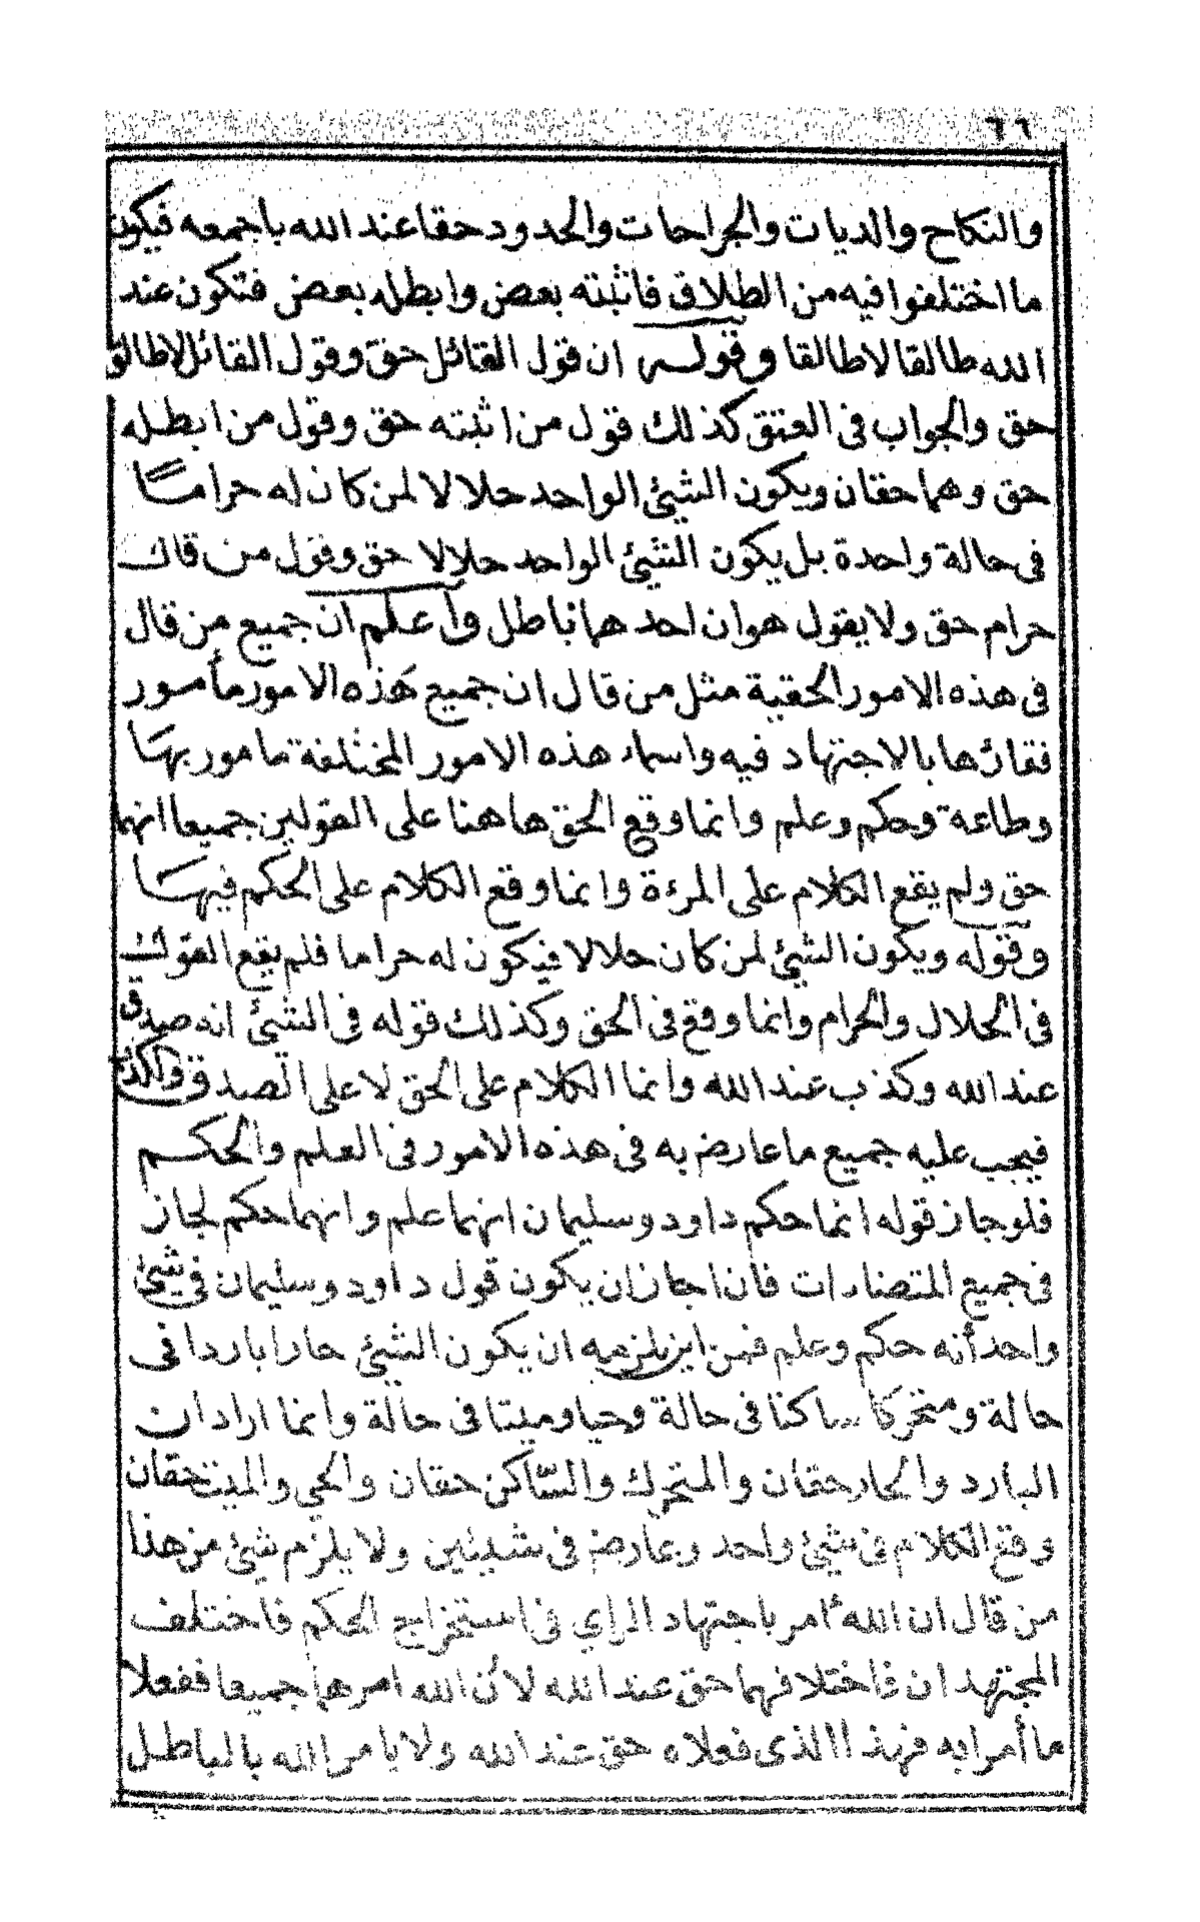 ٦٦
والنكاح والديات والجراحات والحدود حقا عند الله باجمعه فيكون
ما اختلفوا فيه من الطلاق فاثبته بعض وابطله بعض فتكون عند
الله طالقا لا طالقا وقوله ان قول القائل حق وقول القائل لا طالق
حق والجواب فى العتق كذلك قول من اثبته حق وقول من ابطله
حق وهما حقان ويكون الشيئ الواحد حلالا لمن كان له حراما
فى حالة واحدة بل يكون الشيئ الواحد حلالا حق وقول من قال
حرام حق ولا يقول هو ان احدهما باطل وأعلم ان جميع من قال
فى هذه الامور الحقية مثل من قال ان جميع هذه الامور مأمور
فقائرها بالاجتهاد فيه واسماء هذه الامور المختلفة مامور بها
وطاعة وحكم وعلم وانما وقع الحق هاهنا على القولين جميعا انهما
حق ولم يقع الكلام على المرءة وانما وقع الكلام على الحكم فيها
وقوله ويكون الشيئ لمن كان حلالا فيكون له حراما فلم يقع القولين
فى الحلال والحرام وانما وقع فى الحق وكذلك قوله فى الشئ انه صدق
عند الله وكذب عند الله وانما الكلام على الحق لا على الصدق والكذب
فيجب عليه جميع ما عارض به فى هذه الامور فى العلم والحكم
فلو جاز قوله انما حكم داود وسليمان انهما علم وانهما حكم لجاز
فى جميع المتضادات فان اجاز ان يكون قول داود وسليمان فى شيئ
واحد أنه حكم وعلم فمن اين يلزميه ان يكون الشيئ حارا باردا فى
حالة ومتحركا ساكنا فى حالة وحيا وميتا فى حالة وانما اراد ان
البارد والحار حقان والمتحرك والساكن حقان والحي والميت حقان
وقع الكلام فى شيئ واحد وعارض فى شيئين ولا يلزم شيئ من هذا
من قال ان الله أمر باجتهاد الراي فى استخراج الحكم فاختلف
المجتهد ان فاختلافهما حق عند الله لأن الله امرهما جميعا ففعلا
ما أمرا به فهذا الذى فعلاه حق عند الله ولا يامر الله بالباطل